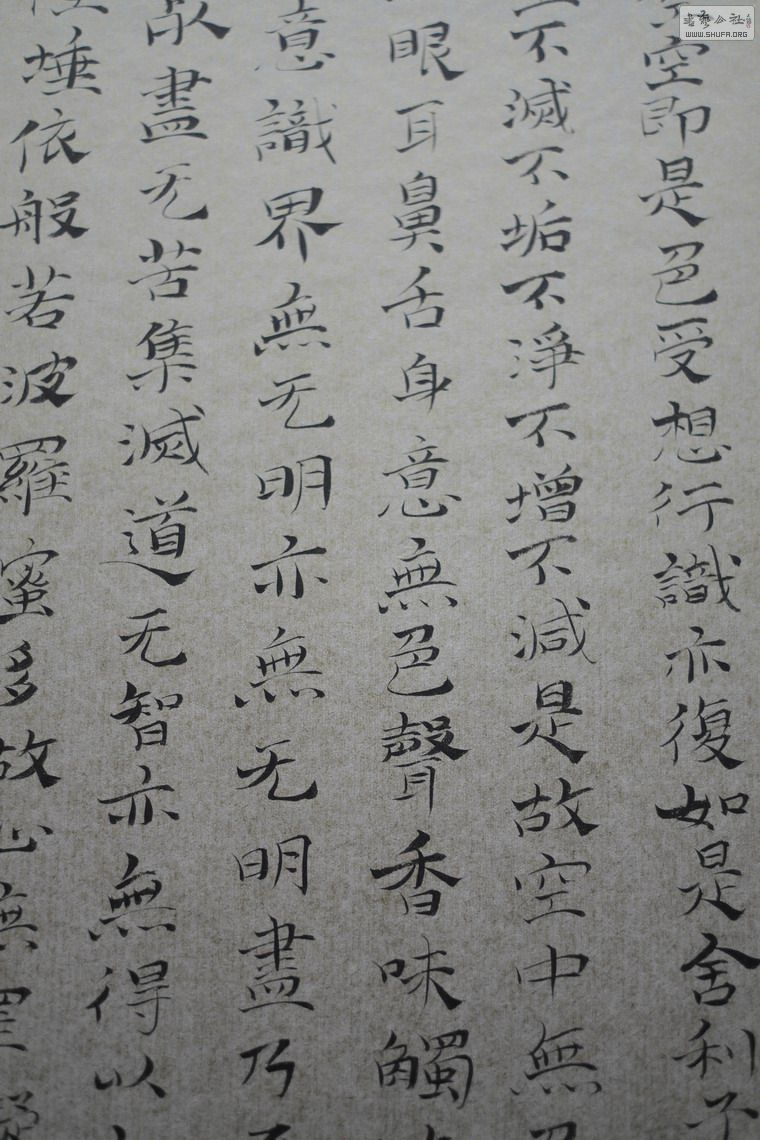 空即是色受想行識亦復如是舍利子
不滅不垢不淨不增不減是故空中無
眼耳鼻舌身意無色聲香味觸
意識界無无明亦無无明盡乃
死盡无苦集滅道无智亦無得以
埵依般若波羅蜜多故心無罣
書藝公社
WWW.SHUFA.ORG